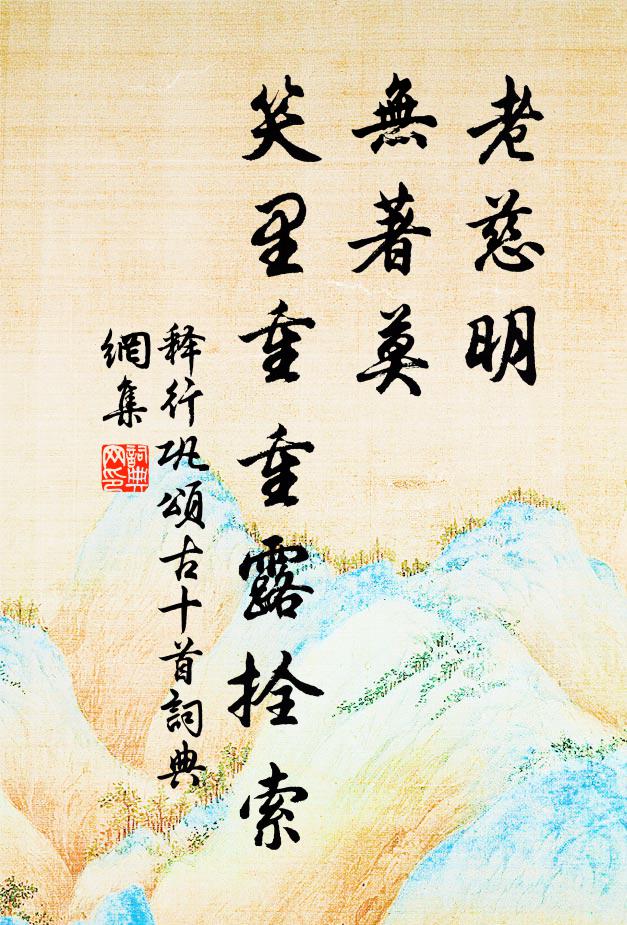 老慈明
無著莫
笑里重重露拴索
释行巩頌古十首詞典
網集
詞典
网印